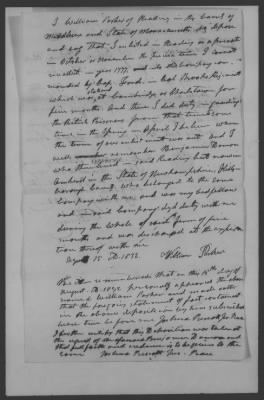 I William Parker of Reading in the County of
Middlesex and State of Massachusetts, do depose
and say that I enlisted in Reading as a private
in October or November the precise time I cannot
recollect in year 1777 into the company com-
manded by Capt. Ford in Col. Brooks Regiment
which was stationed at Cambridge or Charlestown for
five months. And there I did duty in guarding
the British Prisoners from that time some
time in the Spring in April I believe when
the term of our enlistment was out and I
well remember Benjamin Damon
who then lived in said Reading but now in
Amherst in the State of New hampshire, Hills-
borough County, who belonged to the same
Company with me and was my bedfellow
and in said company did duty with me
during the whole of said term of five
months and was discharged at the expira-
tion thereof with me.
August 15 AD. 1832 William Parker
Be it remembered that on this 15th day of
August AD 1832 personally appeared the above
named William Parker and made oath
that the foregoing statement of facts contained
in the above deposition by him subscribed
were true before me Joshua Prescott Jus. Peace
I further certify that this Deposition was taken at
the request of the aforesaid Benjamin Damon and
that full faith and credence is to be given to the
same Joshua Prescott Jus. Peace